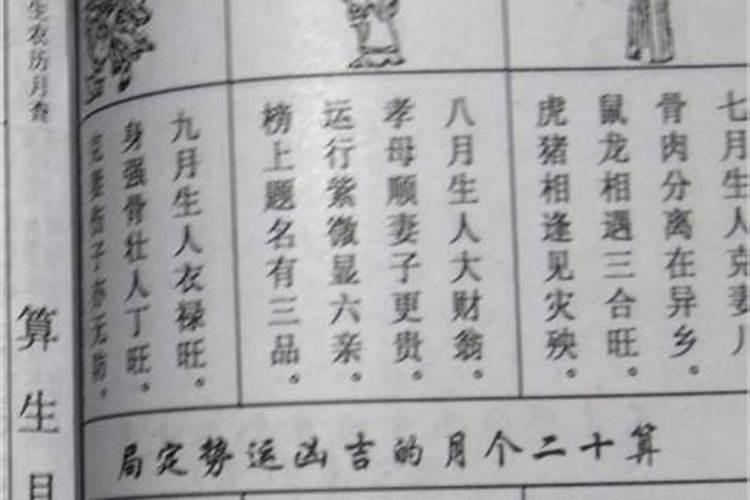 七月生人克妻儿
骨肉分离在异乡。
鼠龙相遇三合旺。
虎猪相逢见灾殃。
八月生人大财翁。
孝母顺妻子更贵。
运行紫微显六亲。
榜上题名有三品。
九月生人衣禄旺。
身强骨壮人丁旺。
克妻伤子亦无防。
算十二个月的吉凶运势定局
生农历月查
算生